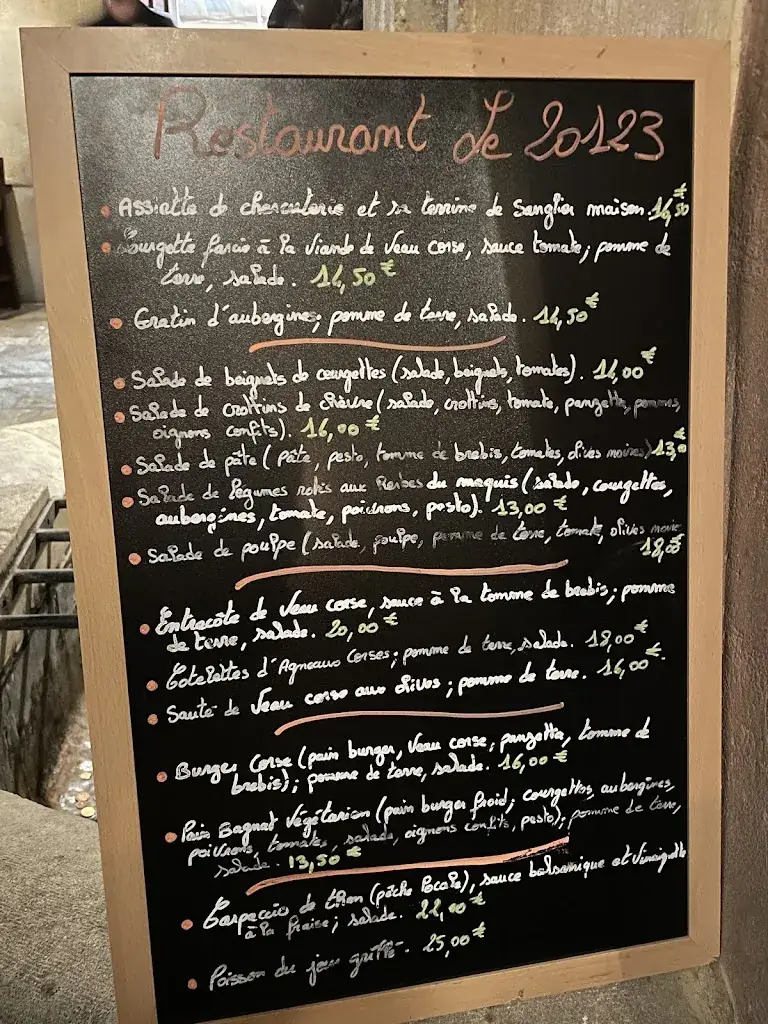 Restaurant Le 20123
• Assiette de charcuterie et sa terrine de Sanglier maison. 16,50 €
• Courgette farcie à la viande de veau corse, sauce tomate; pomme de
terre, salade. 14,50 €
• Gratin d'aubergines; pomme de terre, salade. 14,50 €
• Salade de beignets de courgettes (salade, beignets, tomates). 14,00 €
• Salade de crottins de chèvre (salade, crottins, tomate, panzetta, pommes,
oignons confits). 16,00 €
• Salade de pâte (pâte, pesto, tomme de brebis, tomates, olives noires) 13,0 €
• Salade de légumes rotis aux herbes du maquis (salade, courgettes,
aubergines, tomate, poivrons, pesto). 13,00 €
• Salade de poulpe (salade, poulpe, pomme de terre, tomate, olives noire
18,00 €
• Entrecôte de Veau corse, sauce à la tomme de brebis; pomme
de terre, salade. 20,00 €
• Cotelettes d'Agneaux Corses; pomme de terre, salade. 18,00 €
• Sauté de Veau corse aux olives; pomme de terre. 16,00 €.
• Burger Corse (pain burger, Veau corse, panzetta, tomme de
brebis); pomme de terre, salade. 16,00 €
• Pain Bagnat Végétarien (pain burger froid, courgettes, aubergines,
poivrons, tomates, salade, oignons confits, pesto); pomme de terre,
salade. 13,50 €
• Carpaccio de thon (pêche locale), sauce balsamique et vinaigrette
à la fraise; salade. 22,00 €
• Poisson du jour grillé. 25,00 €